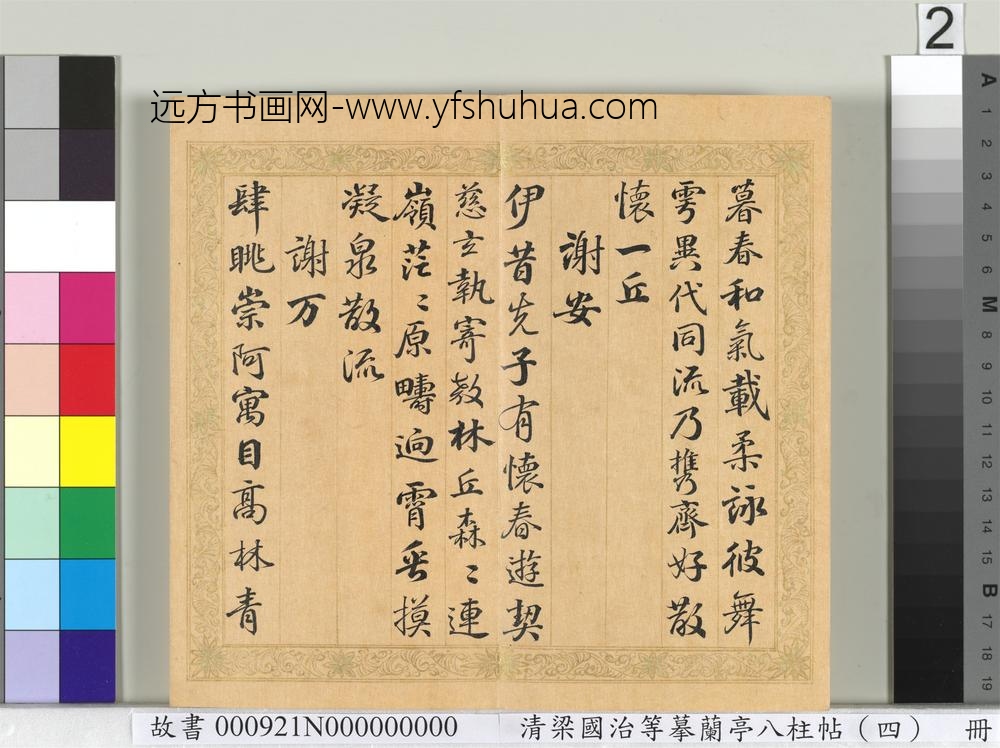 2
远方书画网-www.yfshuhua.com
暮春和氣載柔詠彼舞
雩異代同流乃携齊好散
懷一丘
謝安
伊昔先子有懷春遊契
慈玄執寄敖林丘森〻連
嶺茫〻原疇逈霄垂
凝泉散流
謝万
肆眺崇阿寓目高林青
故書 000921N000000000 清梁國治等摹蘭亭八柱帖（四） 冊
A
1
2
3
4
5
6
M
8
9
10
11
12
13
14
15
B
17
18
19